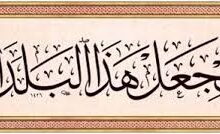 جعل هَذَا الْبَلَدَ ا